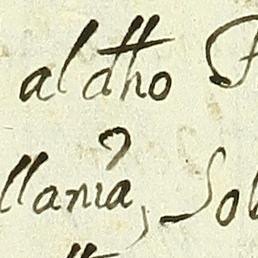 al dho
llania, Sob